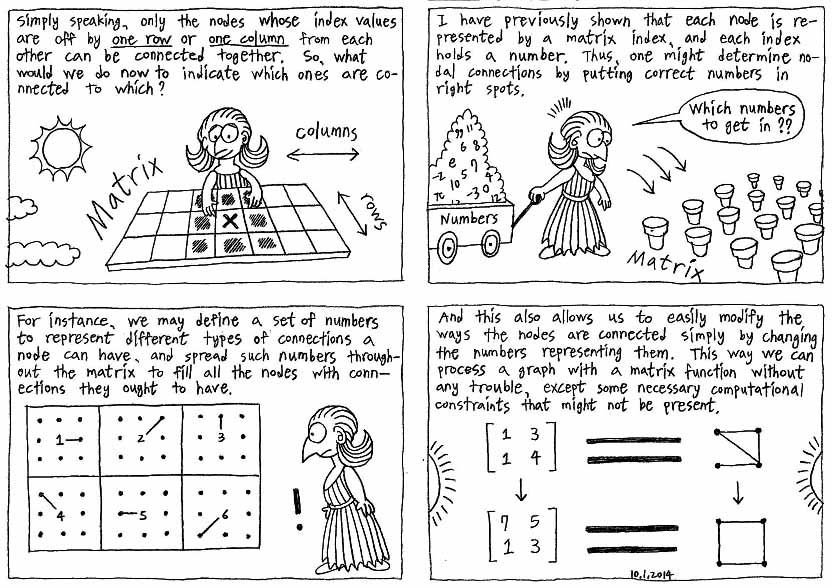 Simply speaking, only the nodes whose index values
are off by one row or one column from each
other can be connected together. So, what
would we do now to indicate which ones are co-
nnected to which?
columns
Matrix
rows
X
I have previously shown that each node is re-
presented by a matrix index, and each index
holds a number. Thus, one might determine no-
dal connections by putting correct numbers in
right spots.
Which numbers
to get in ??
Numbers
Matrix
For instance, we may define a set of numbers
to represent different types of connections a
node can have, and spread such numbers through-
out the matrix to fill all the nodes with conn-
ections they ought to have.
1 2 3
4 5 6
!
And this also allows us to easily modify the
ways the nodes are connected simply by changing
the numbers representing them. This way we can
process a graph with a matrix function without
any trouble, except some necessary computational
constraints that might not be present.
1 3
1 4
7 5
1 3
10.1.2014